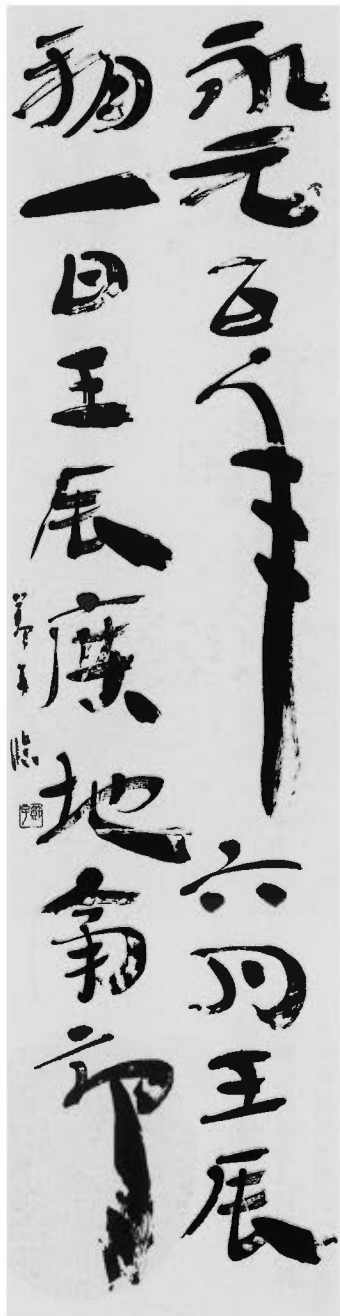 永元五年六月壬辰
朔一日壬辰广地南部